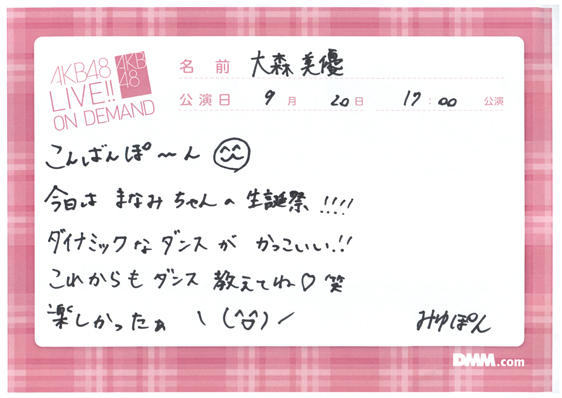 AKB48
LIVE!!
ON DEMAND
AKB
48
名 前 大森美優
公演日 9月 20日 17:00 公演
こんばんぽ〜ん
今日は まなみちゃんの 生誕祭 !!!!
ダイナミックな ダンスが かっこいい!!
これからも ダンス 教えてね♡ 笑
楽しかったぁ \(^o^)/
みゆぽん
DMM.com